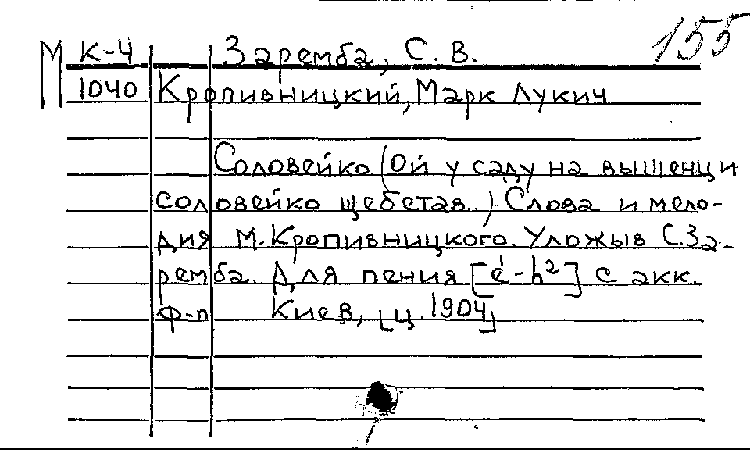 155
М К-4 Заремба, С. В.
1040 Кропивницкий, Марк Лукич
Соловейко (Ой у саду на вышенци
соловейко щебетав.) Слова и мело-
дия М. Кропивницкого. Уложыв С. За-
ремба. Для пения [e¹-h²] с акк.
ф-п Киев, [ц. 1904]